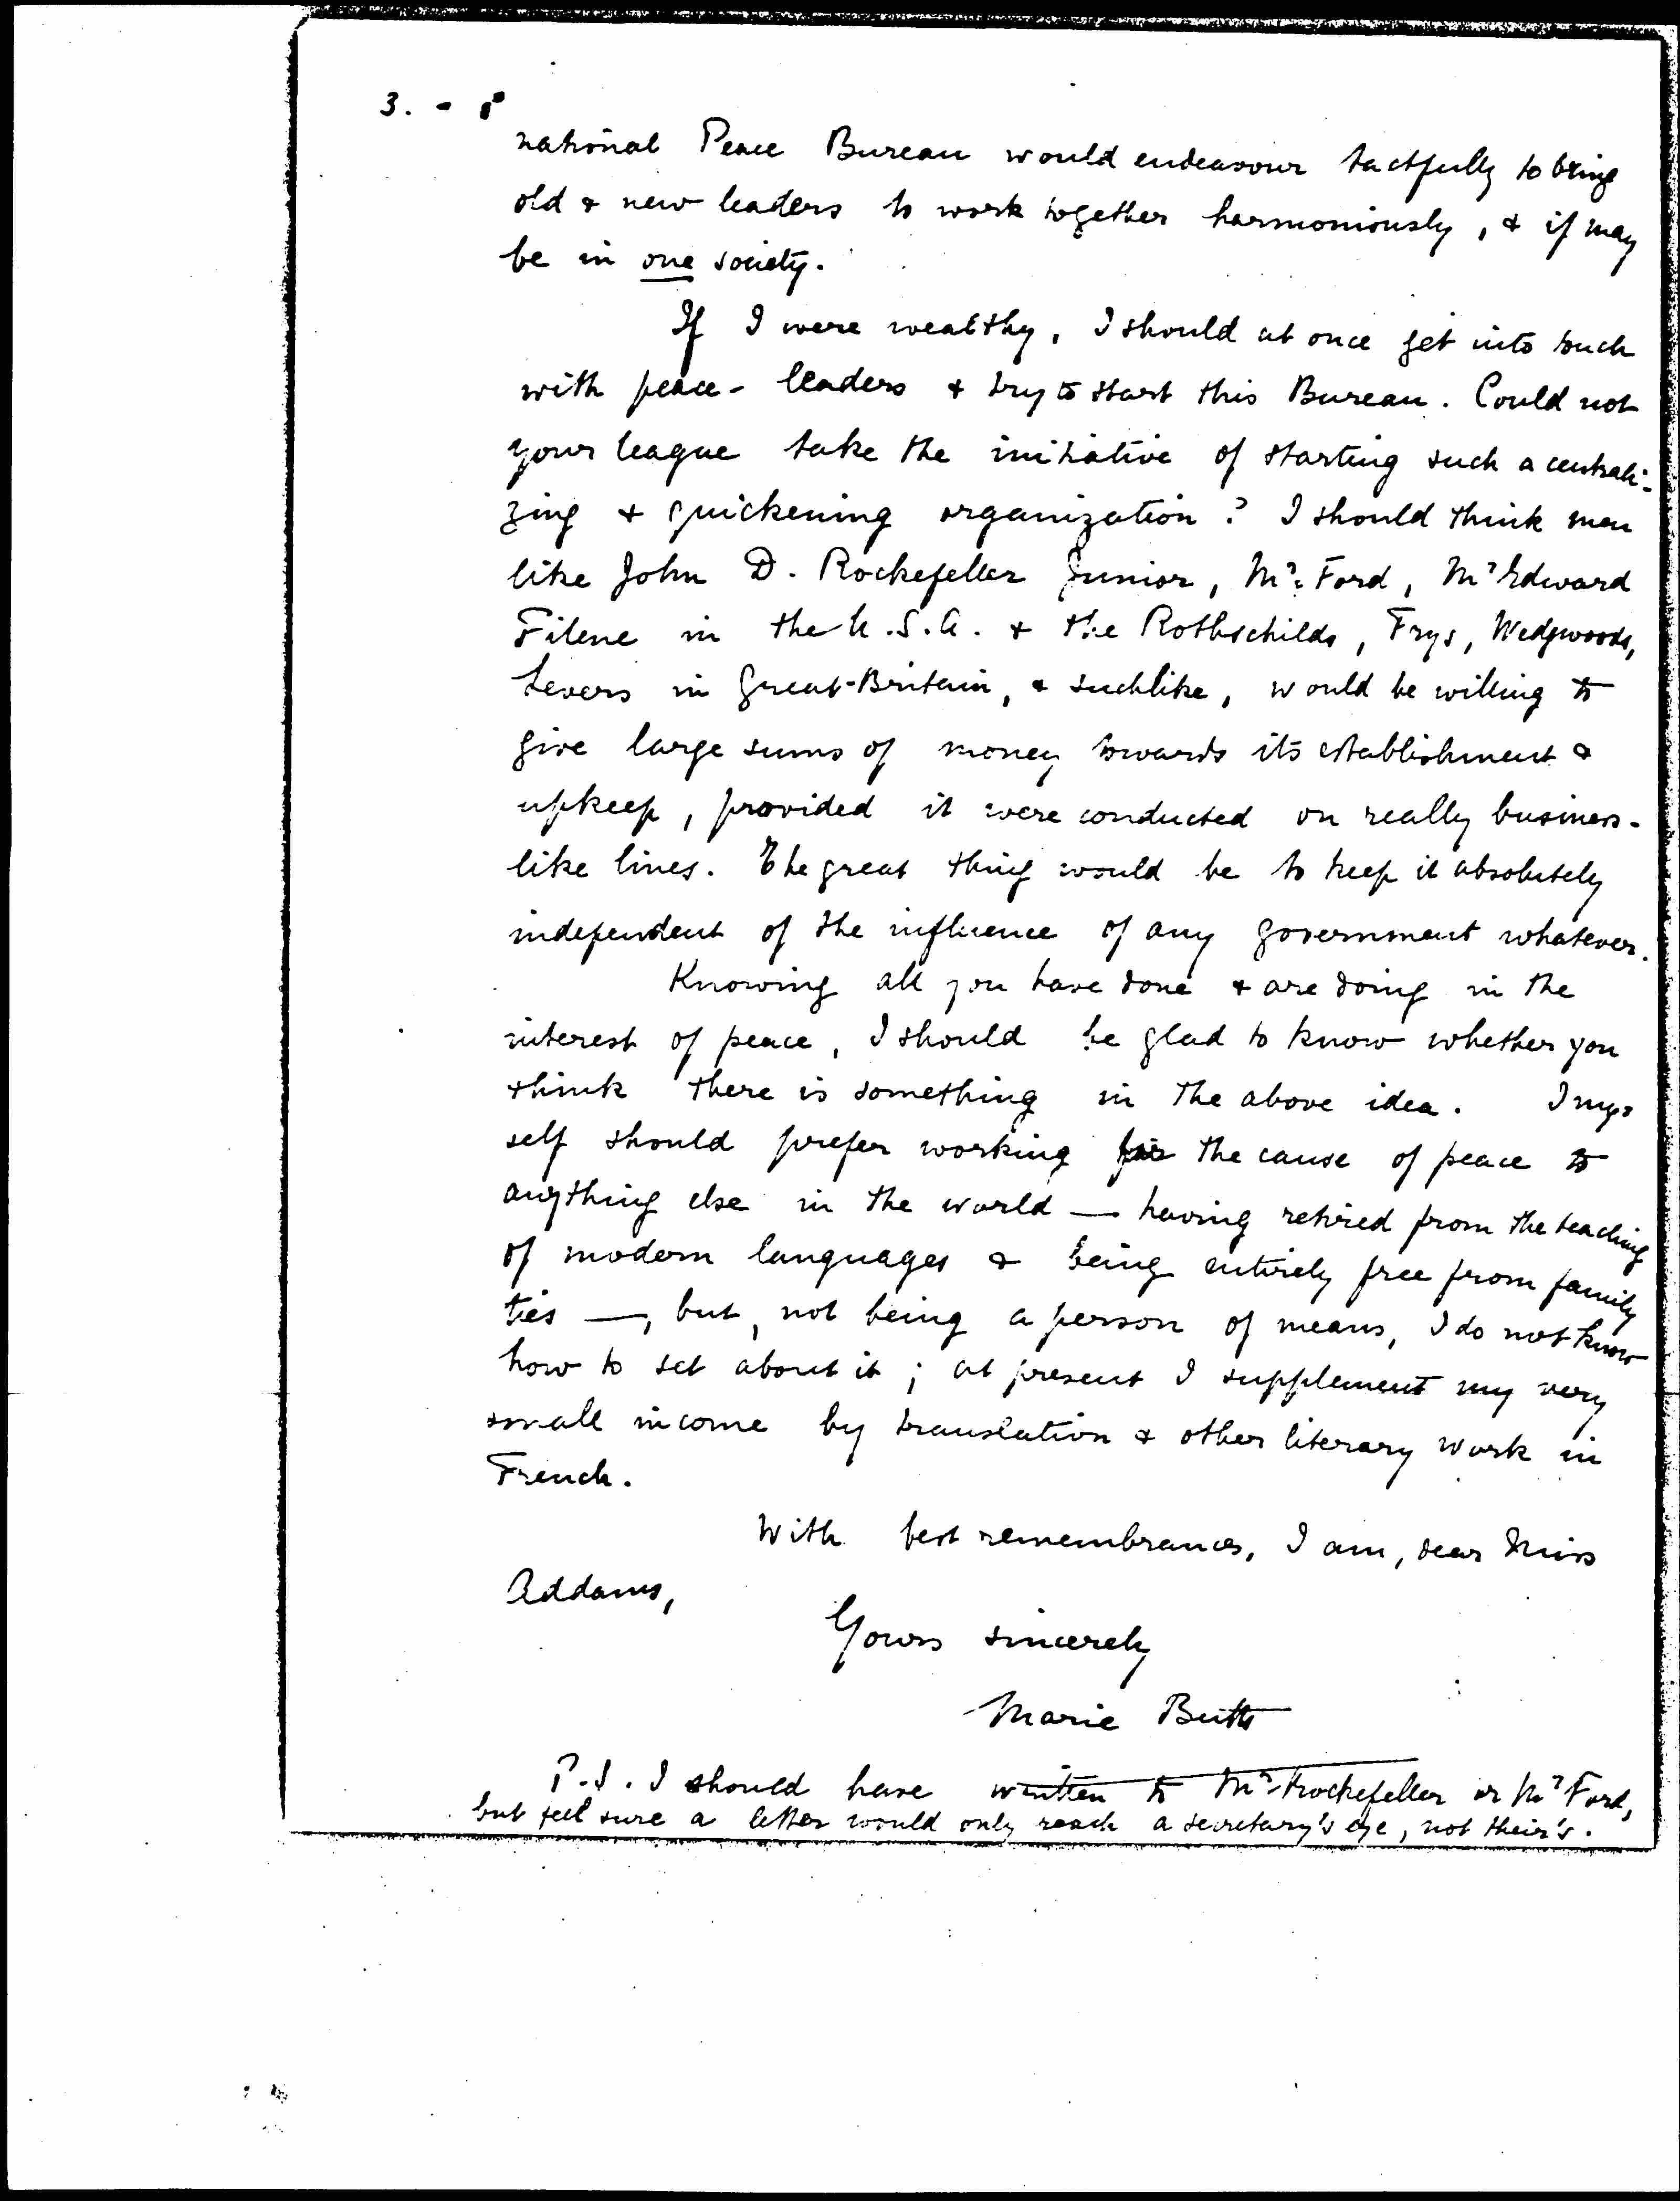 3. -
national Peace Bureau would endeavour tactfully to bring
old & new leaders to work together harmoniously, & if may
be in one society.
If I were wealthy, I should at once get into touch
with peace-leaders & try to start this Bureau. Could not
your league take the initiative of starting such a centrali-
zing & quickening organization? I should think men
like John D. Rockefeller Junior, Mr. Ford, Mr Edward
Filene in the U.S.A. & the Rothschilds, Frys, Wedgwoods,
Levers in Great-Britain, & suchlike, would be willing to
give large sums of money towards its establishment &
upkeep, provided it were conducted on really business-
like lines. The great thing would be to keep it absolutely
independent of the influence of any government whatever.
Knowing all you have done & are doing in the
interest of peace, I should be glad to know whether you
think there is something in the above idea. I my-
self should prefer working for the cause of peace to
anything else in the world — having retired from the teaching
of modern languages & being entirely free from family
ties —, but, not being a person of means, I do not know
how to set about it; at present I supplement my very
small income by translation & other literary work in
French.
With best remembrances, I am, dear Miss
Addams,
Yours sincerely
Marie Butts
P.S. I should have written to Mr Rockefeller or Mr Ford,
but feel sure a letter would only reach a secretary's eye, not their's.